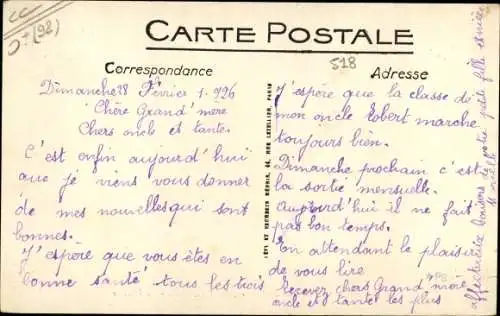 CARTE POSTALE
Correspondance
Adresse
518
(92)
Dimanche 28 Février 1926
Chère Grand'mère
Chers oncle et tante.
C'est enfin aujourd'hui
que je viens vous donner
de mes nouvelles qui sont
bonnes.
J'espère que vous êtes en
bonne santé tous les trois
J'espère que la classe de
mon oncle Robert marche
toujours bien.
Dimanche prochain c'est
la sortie mensuelle.
Aujourd'hui il ne fait
pas bon temps.
En attendant le plaisir
de vous lire
Recevez chers Grand'mère
oncle et tante les plus
affectueux baisers de votre petite fille et nièce